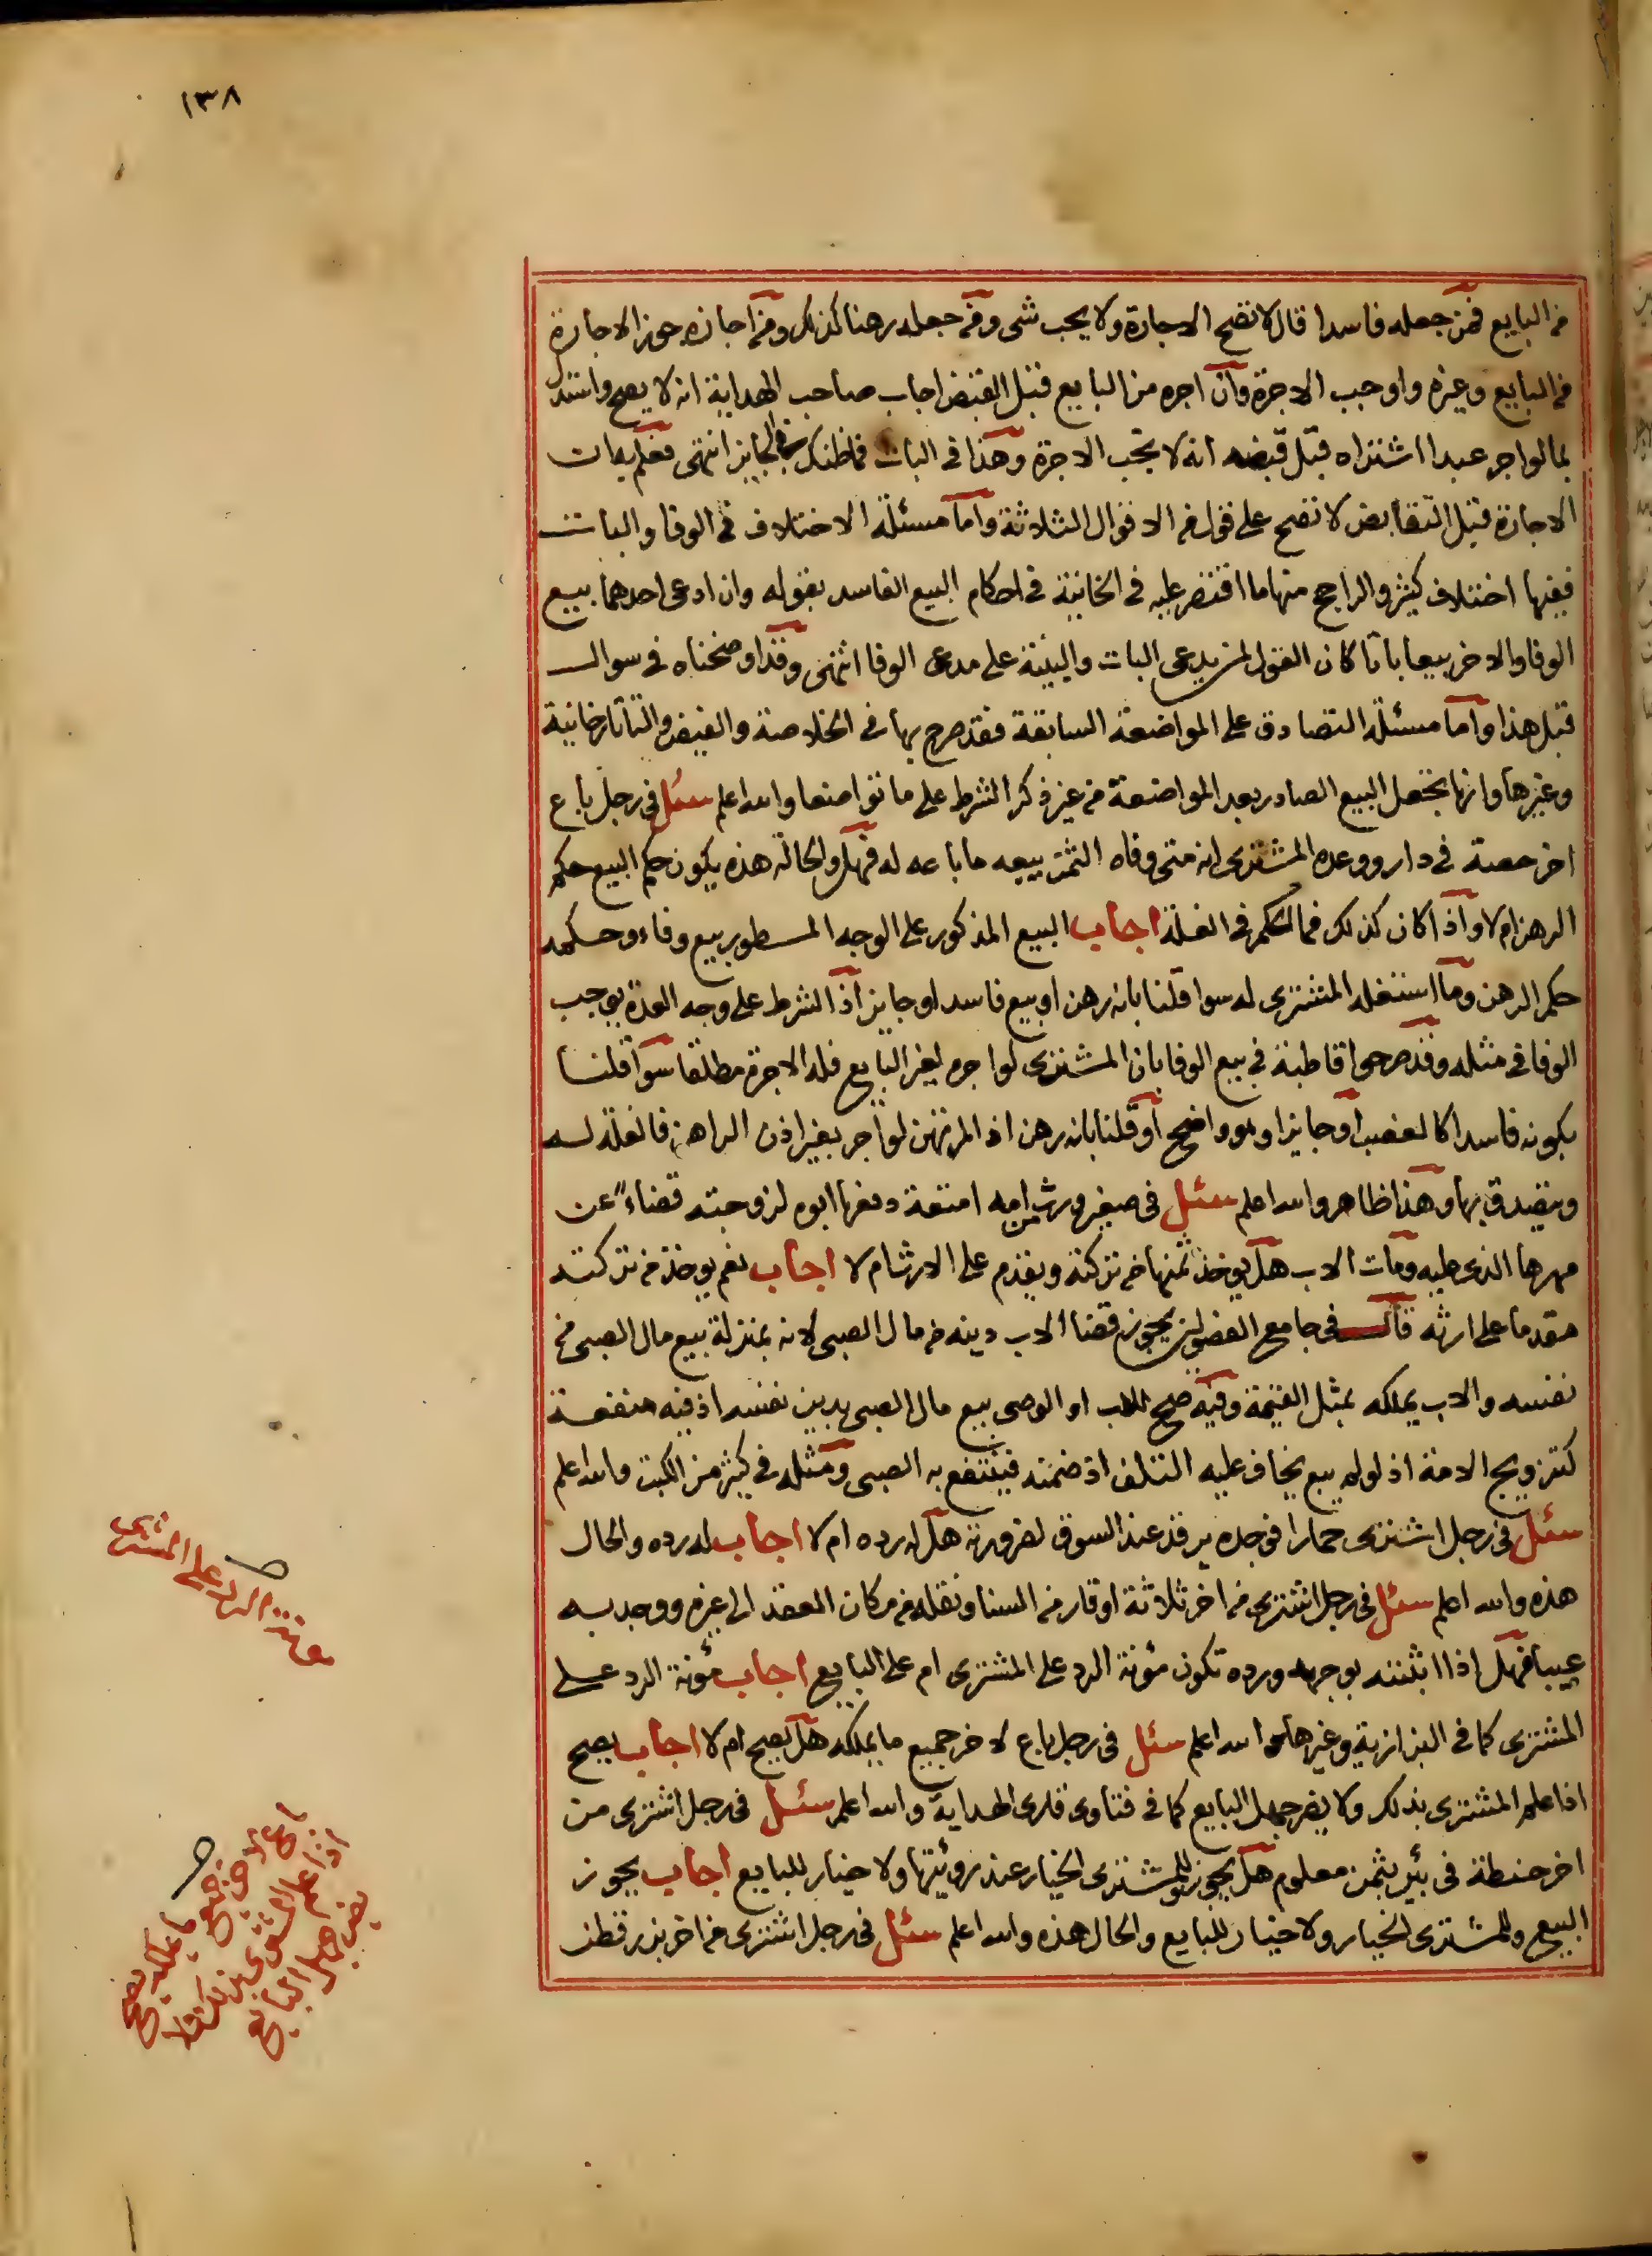 ١٣٨
من البايع فمن جعله فاسدا قال لا تصح الاجارة ولا يجب شى ومن جعله رهنا كذلك ومن اجازه جوز الاجارة
من البايع وغيره واوجب الاجرة وان اجره من البايع قبل القبض اجاب صاحب الهداية انه لا يصح واستدل
بما لو اجر عبدا اشتراه قبل قبضه انه لا تجب الاجرة وهذا فى البات فما ظنك فى الجايز انتهى فعلم به ان
الاجارة قبل التقابض لا تصح على قول من الاقوال الثلاثة واما مسئلة الاختلاف فى الوفا والبات
ففيها اختلاف كثير والراجح منها ما اقتصر عليه فى الخانية فى احكام البيع الفاسد بقوله وان ادعى احدهما بيع
الوفا والاخر بيعا باتا كان القول لمن يدعى البات والبينة على مدعى الوفا انتهى وقد اوضحناه فى سوال
قبل هذا واما مسئلة التصادق على المواضعة السابقة فقد صرح بها فى الخلاصة والفيض والتتارخانية
وغيرها وانها تجعل البيع الصادر بعد المواضعة من غير ذكر الشرط على ما تواضعا والله اعلم سئل فى رجل باع
اخر حصة فى دار ووعده المشترى انه متى وفاه الثمن يبيعه ما باعه له فهل والحالة هذه يكون حكم البيع حكم
الرهن ام لا واذا كان كذلك فما الحكم فى الغلة اجاب البيع المذكور على الوجه المسطور بيع وفاء وحكمه
حكم الرهن وما استغله المشترى له سوا قلنا بانه رهن او بيع فاسد او جايز اذ الشرط على وجه العدة يوجب
الوفا فى مثله وقد صرحوا قاطبة فى بيع الوفا بان المشترى لو اجره لغير البايع فله الاجرة مطلقا سوا قلنا
بكونه فاسدا كالغصب او جايزا وهو واضح او قلنا بانه رهن اذ المرتهن لو اجر بغير اذن الراهن فالغلة له
ويتصدق بها وهذا ظاهر والله اعلم سئل فى صغير ورث من امه امتعة دفعها ابوه لزوجته قضاء عن
مهرها الذى عليه ومات الاب هل يوخذ ثمنها من تركته ويقدم على الارث ام لا اجاب نعم يوخذ من تركته
مقدما على ارثه قال فى جامع الفصولين يجوز قضا الاب دينه من مال الصبى لانه بمنزلة بيع مال الصبى من
نفسه والاب يملكه بمثل القيمة وفيه صح للاب او الوصى بيع مال الصبى بدين نفسه اذ فيه منفعة
كتزويج الامة اذ لو لم يبع يخاف عليه التلف اذ ضمنه فينتفع به الصبى ومثله فى كثير من الكتب والله اعلم
سئل فى رجل اشترى حمارا فوجده يرقد عند السوق لضرورته هل له رده ام لا اجاب له رده والحال
هذه والله اعلم سئل فى رجل اشترى من اخر ثلاثة اوقار من السنا ونقله من مكان العقد الى غيره ووجد به
عيبا فهل اذا اثبته بوجهه ورده تكون مؤنة الرد على المشترى ام على البايع اجاب مؤنة الرد على
المشترى كما فى البزازية وغيرها والله اعلم سئل فى رجل باع لاخر جميع ما يملكه هل يصح ام لا اجاب يصح
اذا علم المشترى بذلك ولا يضر جهل البايع كما فى فتاوى قارى الهداية والله اعلم سئل فى رجل اشترى من
اخر حنطة فى بئر بثمن معلوم هل يجوز وللمشترى الخيار عند رؤيتها ولا خيار للبايع اجاب يجوز
البيع وللمشترى الخيار ولا خيار للبايع والحال هذه والله اعلم سئل فى رجل اشترى من اخر بذر قطن
مؤنة الرد على المشترى
باع لاخر جميع ما يملكه يصح
اذا علم المشترى بذلك ولا
يضر جهل البايع